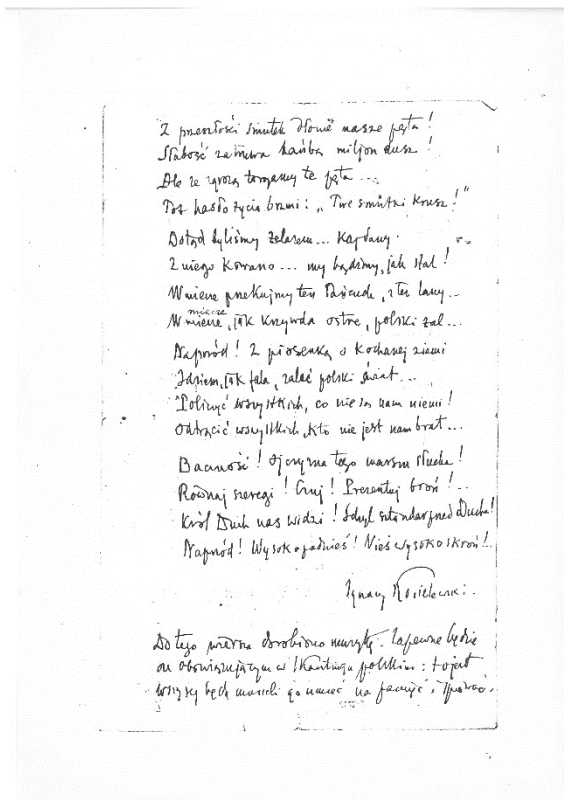 Z przeszłości smutek dłonie nasze pęta!
Słabość zatruwa hańbą miljon dusz!
Ale ze zgrozą targamy te pęta...
Toż hasło życia brzmi: „Twe smutki krusz!"
Dotąd byliśmy żelazem... Kajdany
Z niego kowano... my bądźmy, jak stal!
W miecze przekujmy ten łańcuch, z tej
W miecze, jak krzywda ostre, polski żal...
Naprzód! Z piosenką o kochanej ziemi
Idziem, jak fala, zalać polski świat...
Policzyć wszystkich, co nie są nam niemi!
Odtrącić wszystkich, kto nie jest nam brat...
Baczność! Ojczyzna tego marszu słucha!
Równaj szeregi! Czuj! Prezentuj broń!...
Król Duch nas widzi! sztandar przed Ducha!
Naprzód! Wysoko Nieś wysoko skroń!..
Ignacy Kozielewski.
Do tego wiersza dorobiono muzykę. Zapewne będzie
on obowiązującym w Skautingu polskim: to jest
wszyscy będą musieli go umieć na pamięć i śpiewać.